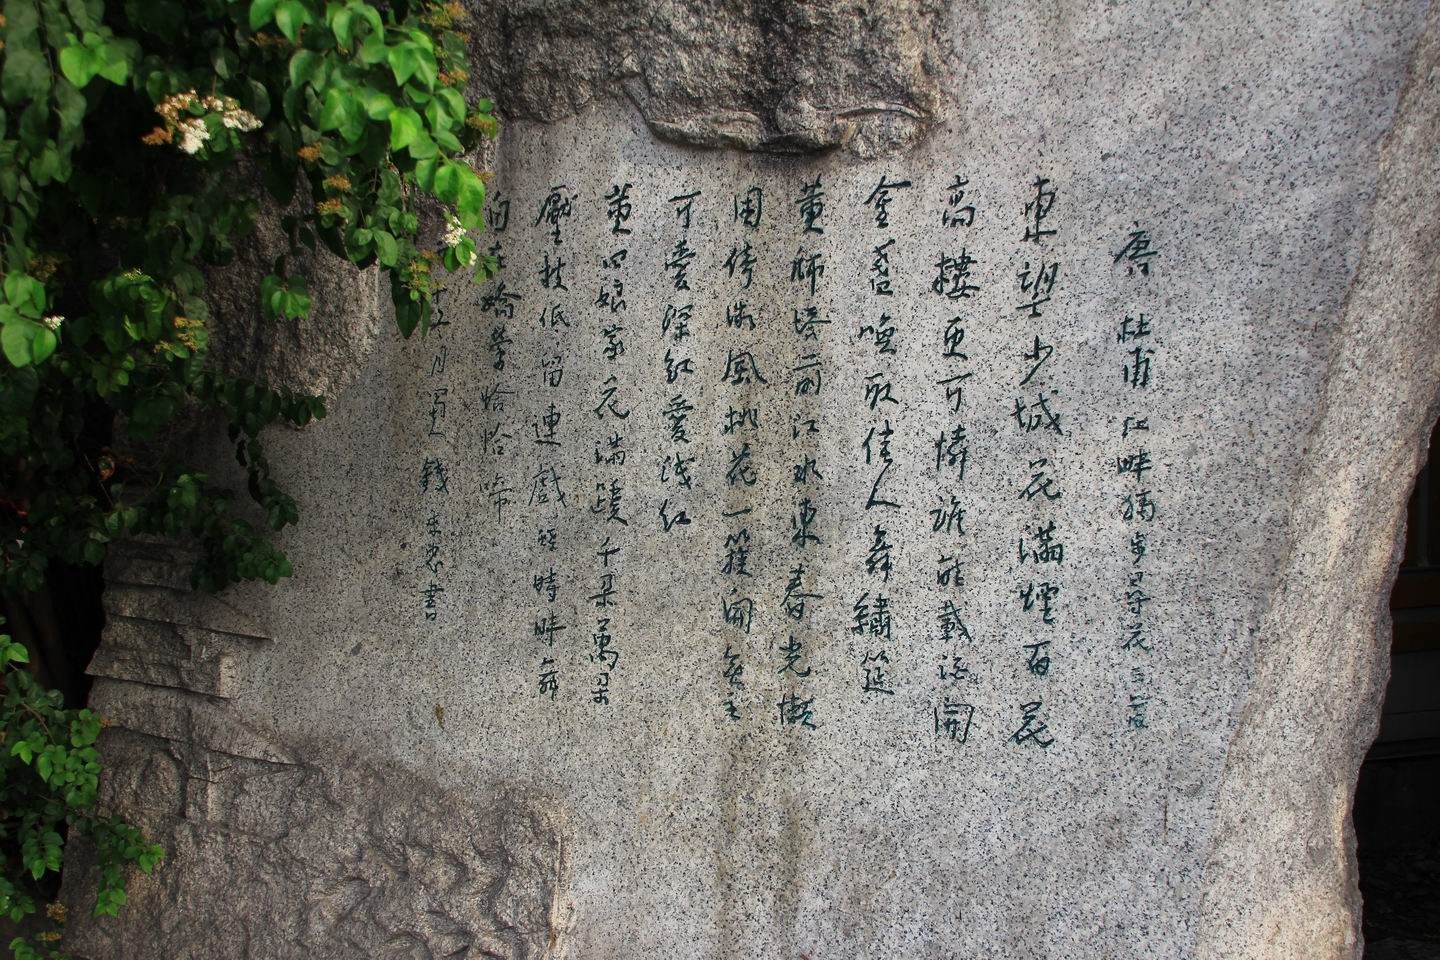 唐 杜甫 江畔獨步尋花
東望少城花滿煙百花
高樓更可憐誰能載酒開
金盞喚取佳人舞繡筵
黃師塔前江水東春光懶
困倚微風桃花一簇開無主
可愛深紅愛淺紅
黃四娘家花滿蹊千朵萬朵
壓枝低留連戲蝶時時舞
自在嬌鶯恰恰啼
月 錢來忠書